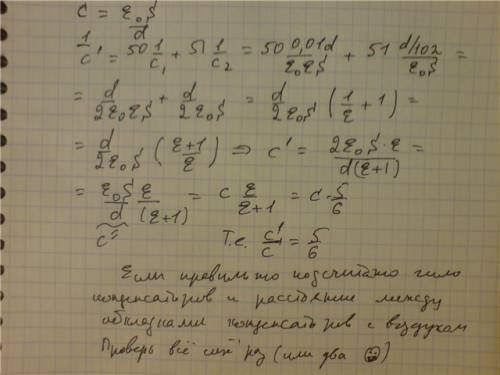 C = ε₀S/d
1/C' = 50 1/C₁ + 51 1/C₂ = 50 0,01d/ε₀εS + 51 d/102/ε₀S =
= d/2ε₀εS + d/2ε₀S = d/2ε₀S (1/ε + 1) =
= d/2ε₀S (ε+1/ε) ⇒ C' = 2ε₀S·ε/d(ε+1) =
= ε₀S/d ε/(ε+1) = C ε/ε+1 = C·5/6
C" Т.е. C'/C = 5/6
Если правильно подсчитано число
конденсаторов и расстояние между
обкладками конденсаторов с воздухом
Проверь всё ещё раз (или два ☺)